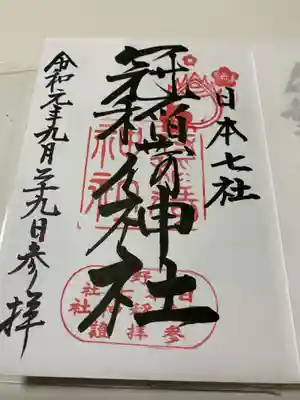 日本七社
冠稲荷神社
令和元年九月二十九日参拝